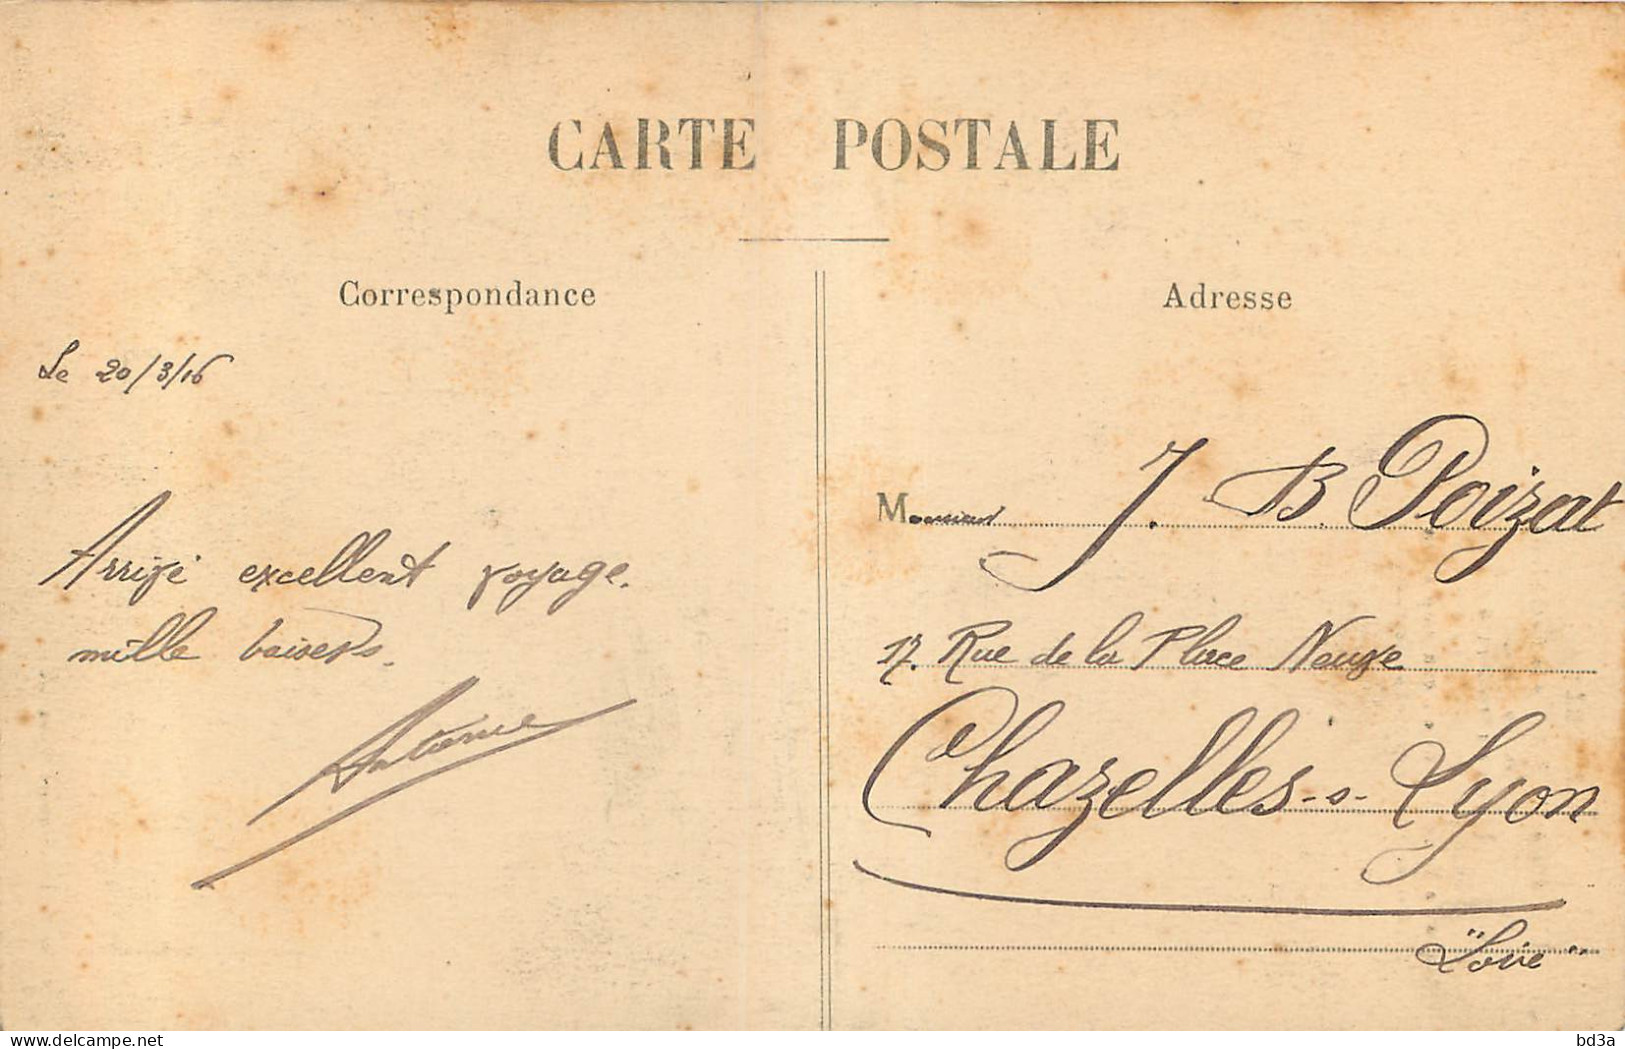 CARTE POSTALE
Correspondance
Adresse
Le 20/3/16
Arrivé excellent voyage.
mille baisers.
Antoine
Monsieur J. B. Poizat
17. Rue de la Place Neuve
Chazelles-s-Lyon
"Loire"
delcampe.net
bd3a